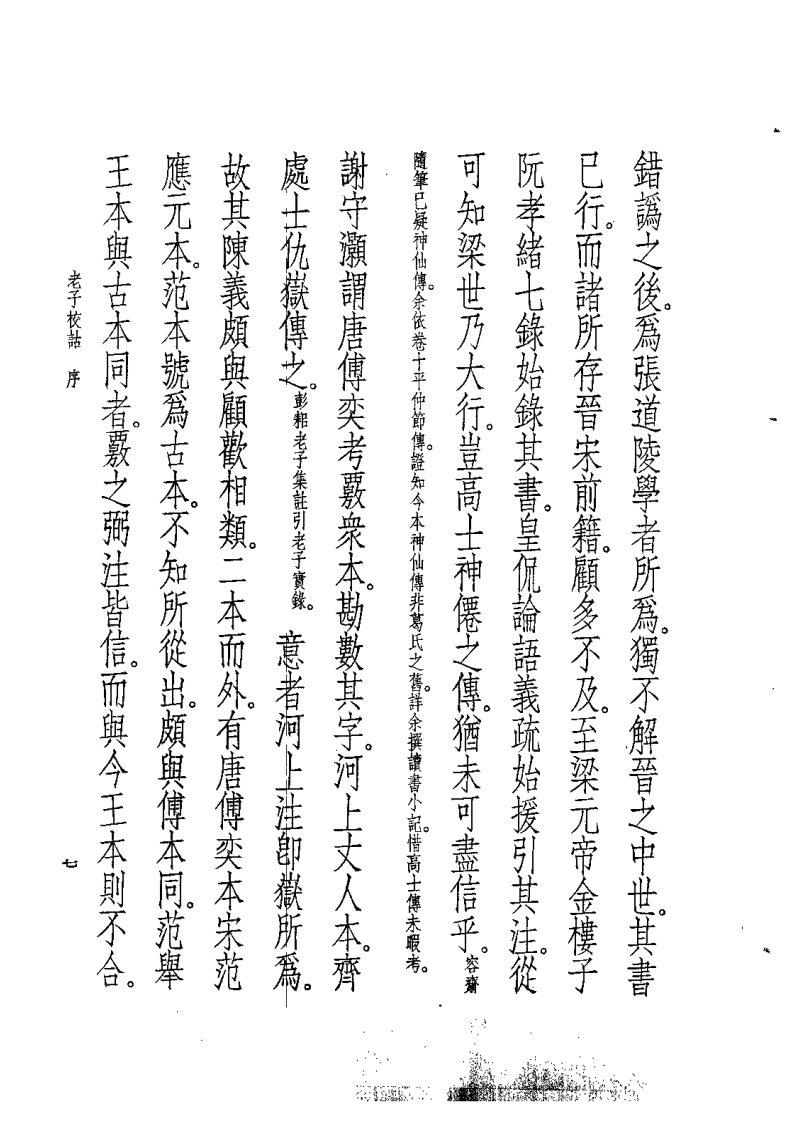 錯譌之後。爲張道陵學者所爲。獨不解晉之中世。其書
已行。而諸所存晉宋前籍。顧多不及。至梁元帝金樓子
阮孝緒七錄始錄其書。皇侃論語義疏始援引其注。從
可知梁世乃大行。豈高士神僊之傳。猶未可盡信乎。容齋
隨筆已疑神仙傳。余依卷十平仲節傳。證知今本神仙傳非葛氏之舊。詳余撰讀書小記。惜高士傳未暇考。
謝守灝謂唐傅奕考覈衆本。勘數其字。河上丈人本。齊
處士仇嶽傳之。彭耜老子集註引老子實錄。意者河上注卽嶽所爲。
故其陳義頗與顧歡相類。二本而外。有唐傅奕本宋范
應元本。范本號爲古本。不知所從出。頗與傅本同。范舉
王本與古本同者。覈之弼注皆信。而與今王本則不合。
老子校詁 序
七